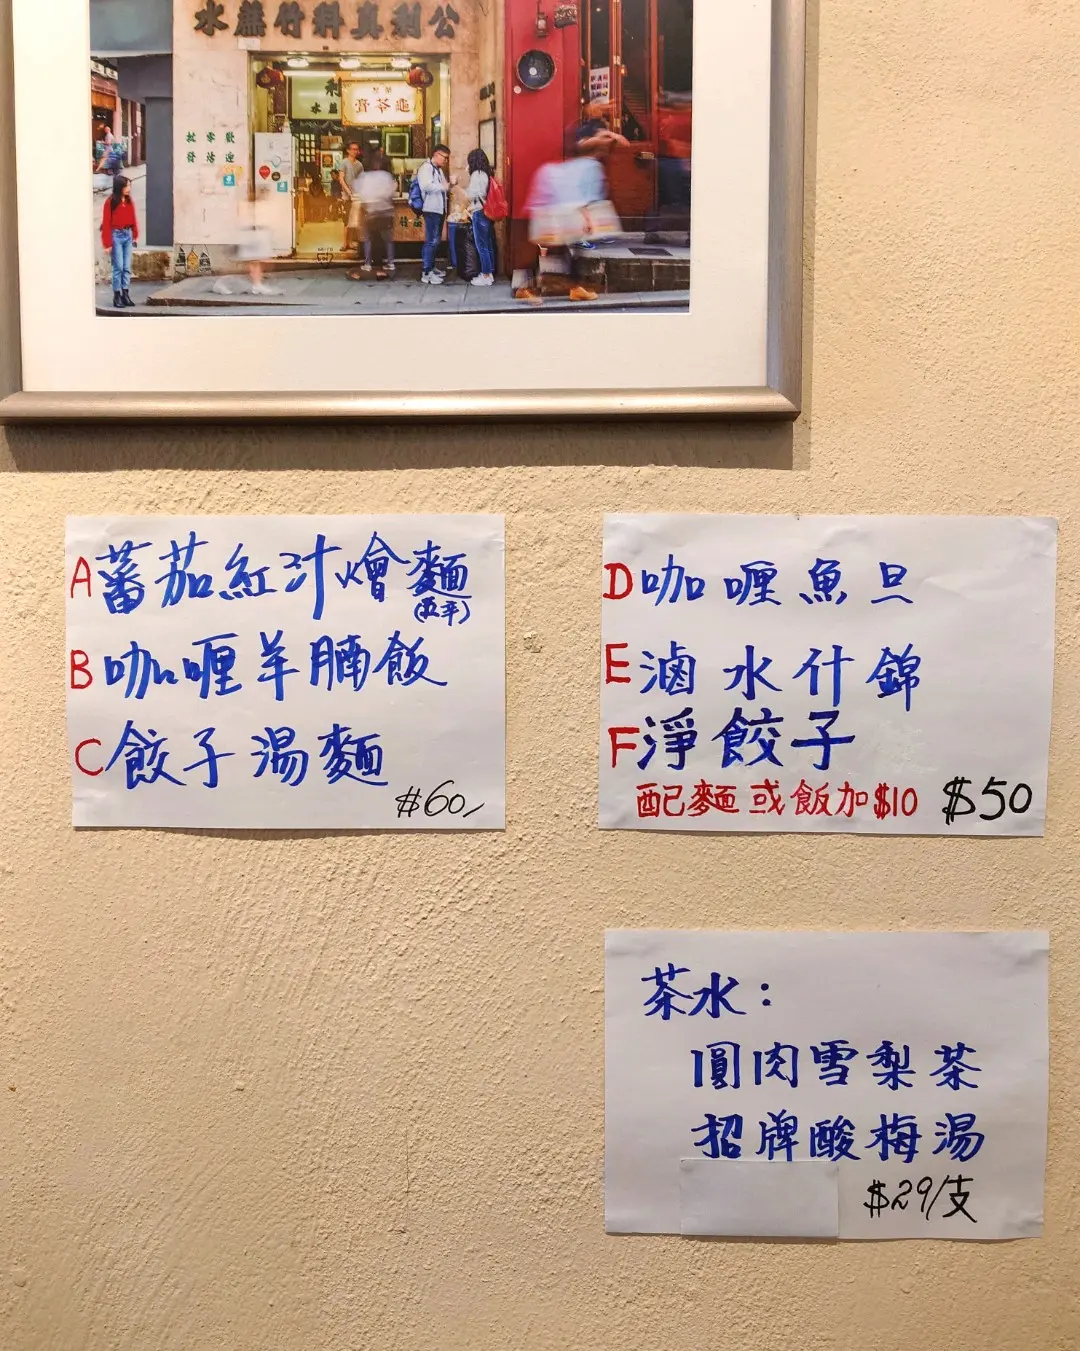 公利真料竹蔗水
龜苓膏
歡迎
零沽
批發
A蕃茄紅汁燴麵
B咖喱羊腩飯
C餃子湯麵
$60
D咖喱魚旦
E滷水什錦
F淨餃子
配麵或飯加$10 $50
茶水：
圓肉雪梨茶
招牌酸梅湯
$29/支